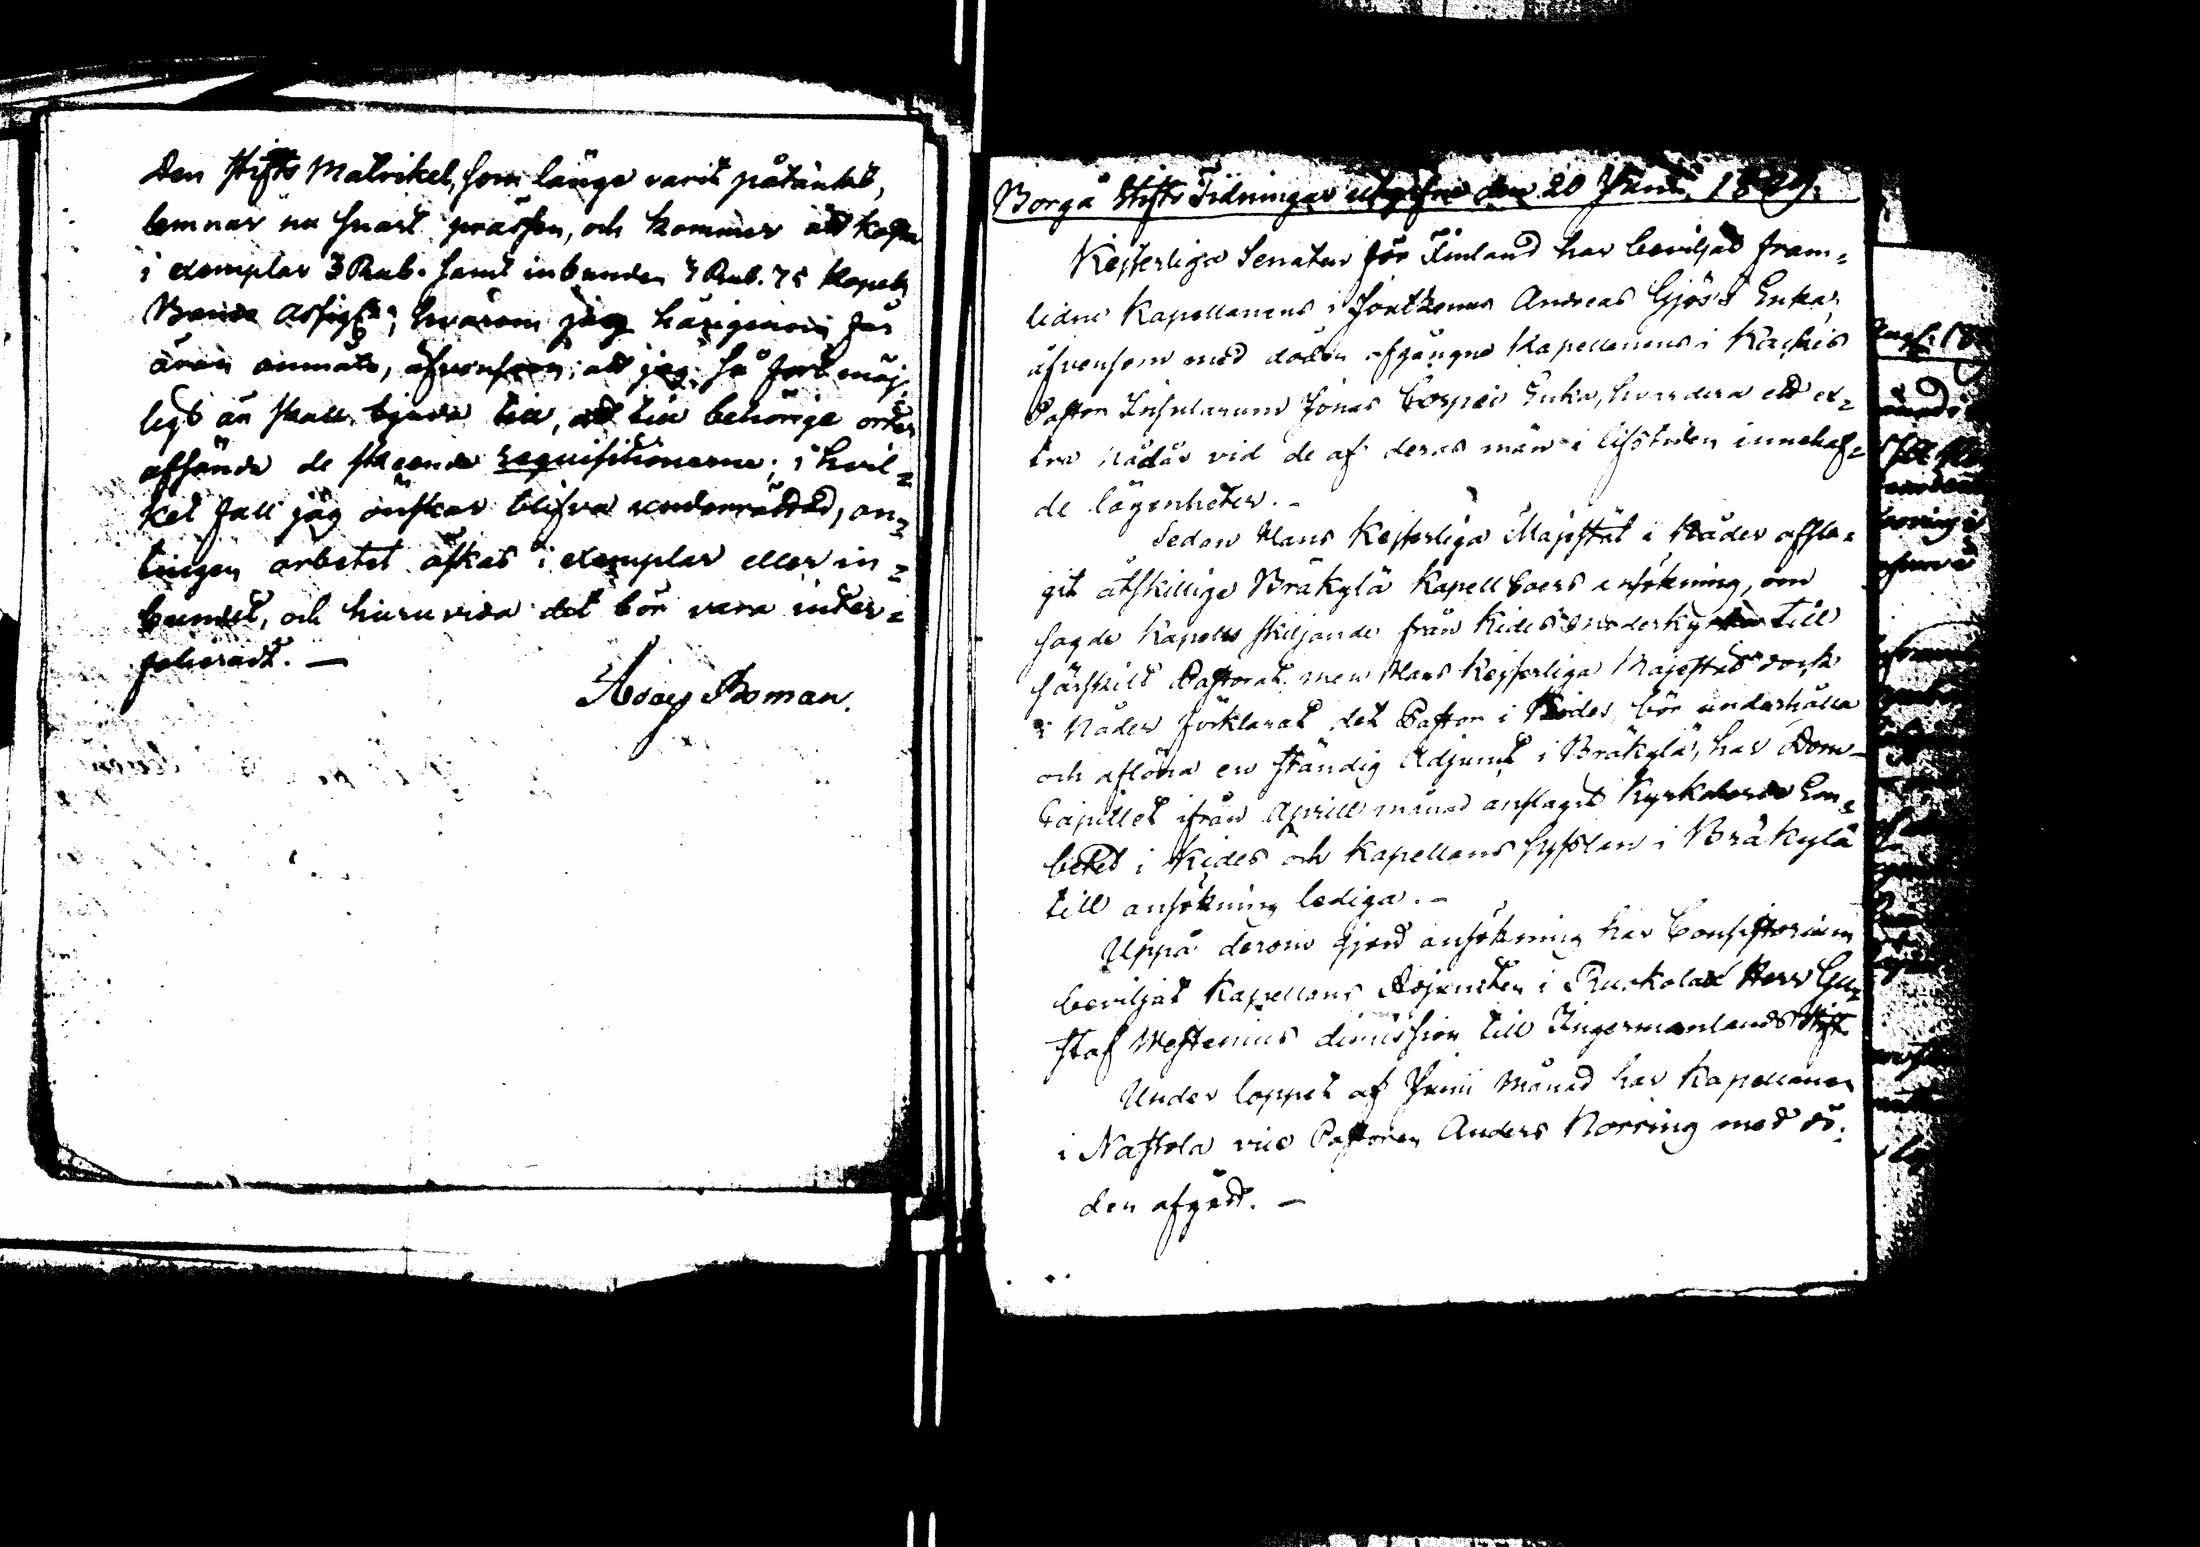 Den Stifts Matrikel, som länge varit påtänkt,
lemnar nu snart prässen, och kommer att kosta
i exemplar 3 Rub. samt inbunden 3 Rub. 75 Kopek
Banco Assigt:r; hvarom jag härigenom får
äran anmäla, äfvensom; att jag, så fort möj-
ligt är skall bjuda till, att till behörige orter
afsända de skeende requisitionerne; i hvil=
ket fall jag önskar blifva underrättad, an=
tingen arbetet äskas i exemplar eller in=
bundet, och huruvida det bör vara inter=
folieradt. —
Boman.
Borgå Stifts Tidningar utgifne den 20 Junii 1829.
Kejserliga Senaten för Finland har beviljat fram=
lidne Kapellanens i Joutzeno Andreas Gjös's Enka,
äfvensom med döden afgångne Kapellanens i Kaskis
Pastor Insularum Jonas Enka, hvardera ett ex=
tra nådår vid de af deras män i lifstiden innehaf=
de lägenheter. -
Sedan Hans Kejserliga Majestät i Nåder afsla=
git åtskillige Bräkylä Kapellboers ansökning, om
sagde Kapells skiljande från Kides moderkyrka till
särskilt Pastorat men Hans Kejserliga Majestät dock
i Nåder förklarat det Pastor i Kides bör underhålla
och aflöna en ständig Adjunct i Bräkylä, har Dom-
Capitlet ifrån Aprill månad anslagit Kyrkoherde Em=
betet i Kides och Kapellans sysslan i Bräkylä
till ansökning lediga. -
Uppå derom gjord ansökning har Consistorium
beviljat Kapellans Adjuncten i Ruokolax Herr Gu=
staf Westenius dimission till Ingermanlands Stift
Under loppet af Junii Månad har Kapellanen
i Nastola vice Pastoren Anders Norring med dö=
den afgått. —